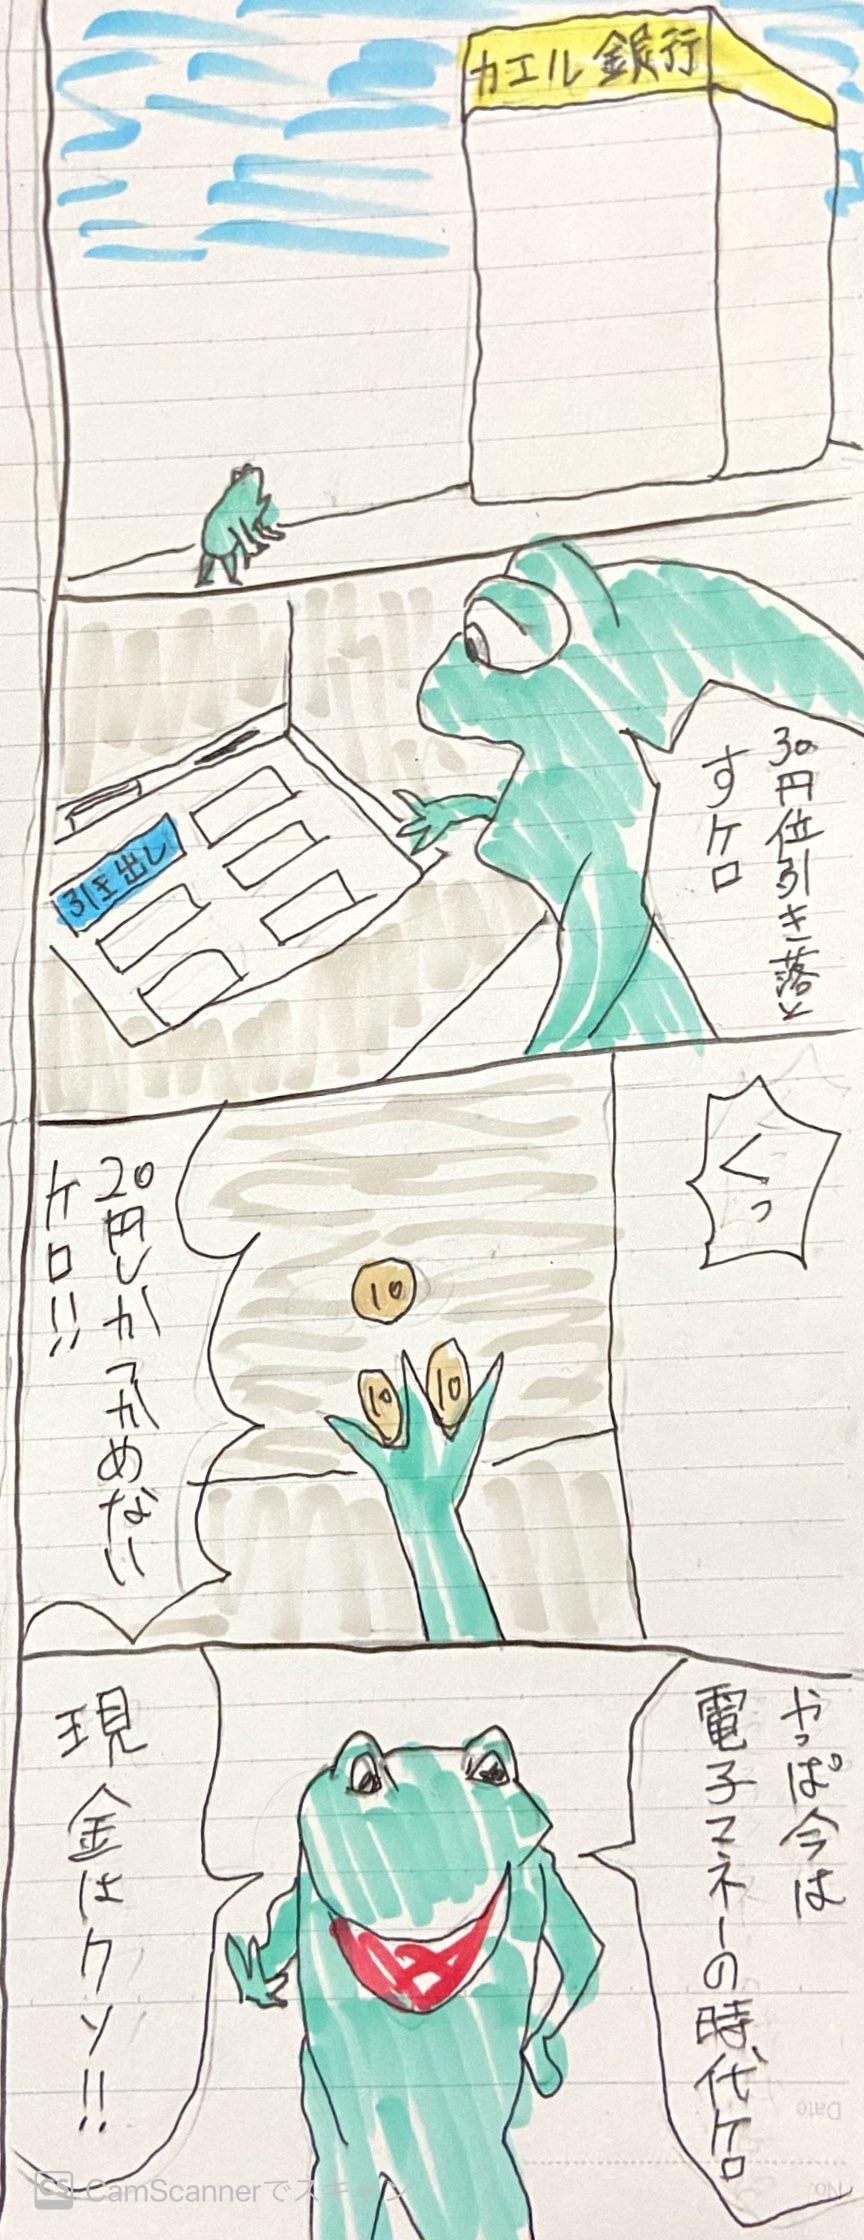 カエル銀行
30円位引き落と
すケロ
引き出し
くっ
10
10
10
20円しかつかめない
ケロ!!
やっぱ今は
電子マネーの時代ケロ
現金はクソ!!
Date
No.
CS CamScannerでスキャン